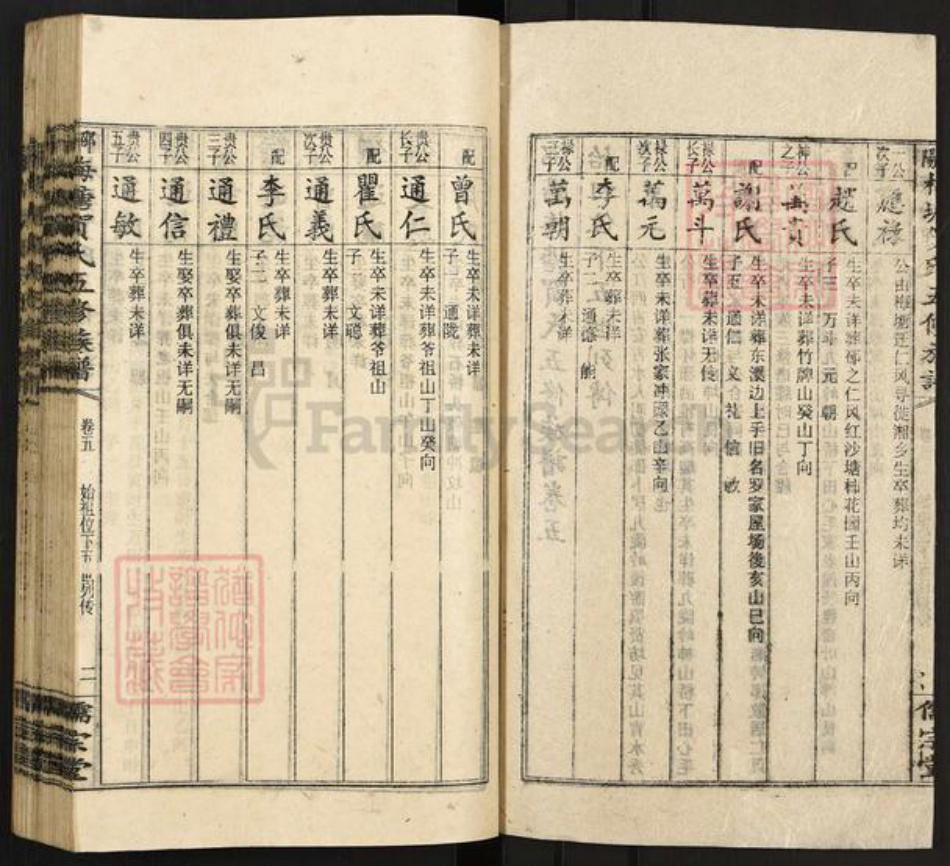 次子
公由
塘迁仁风寻徙湘乡生卒葬均未详
配
趙氏
生卒未详葬
之仁风红沙塘桂花园壬山丙向
子三 万斗 元 朝
之子
萬貴
生卒未详葬竹牌山癸山丁向
配
謝氏
生卒未详葬东溪边上手旧名罗家屋场後亥山巳向
子五 通仁 义 礼 信 敏
禄公
长子
萬斗
生卒葬未详无传
禄公
次子
萬元
生卒未详葬张家冲
乙山辛向
配
李氏
生卒葬未详
子二 通德 能
禄公
三子
萬朝
生卒葬未详
儒宗堂
配
曾氏
生卒未详葬未详
子一 通陇
贵公
长子
通仁
生卒未详葬爷祖山丁山癸向
配
瞿氏
生卒未详葬爷祖山
子一 文聪
贵公
次子
通義
生卒葬未详
配
李氏
生卒葬未详
子二 文俊 昌
贵公
三子
通禮
生娶卒葬俱未详无嗣
贵公
四子
通信
生娶卒葬俱未详无嗣
贵公
五子
通敏
生卒葬未详
賀氏五修族譜
卷五
始祖位下五世列传
二
儒宗堂
FamilySearch